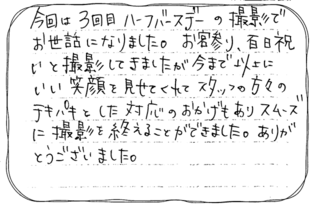 今回は3回目ハーフバースデーの撮影で
お世話になりました。お宮参り、百日祝
いと撮影してきましたが今まで以上に
いい笑顔を見せてくれてスタッフの方々の
テキパキとした対応のおかげもありスムーズ
に撮影を終えることができました。ありが
とうございました。